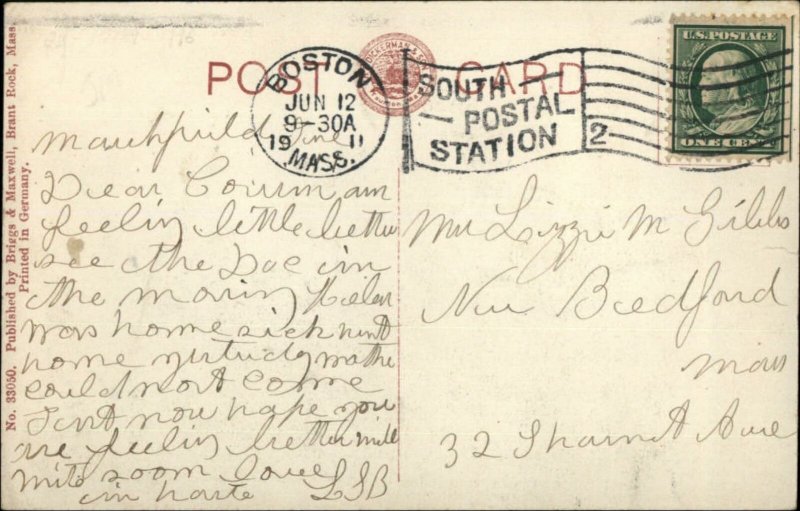 POST CARD
BOSTON
JUN 12
9-30A
19 11
MASS.
SOUTH
POSTAL
STATION
2
U.S. POSTAGE
ONE CENT
No. 33050. Published by Briggs & Maxwell, Brant Rock, Mass.
Printed in Germany.
Marshfield
Dear Cousin am
feelin little better
see the Doc in
the morning Helen
was home sick went
home yesturdy mothe
could not come
now hope you
are feelin better will
write soon love
in haste LSB
Mrs Lizzie M Gibbs
New Bedford
Mass
32 Ave